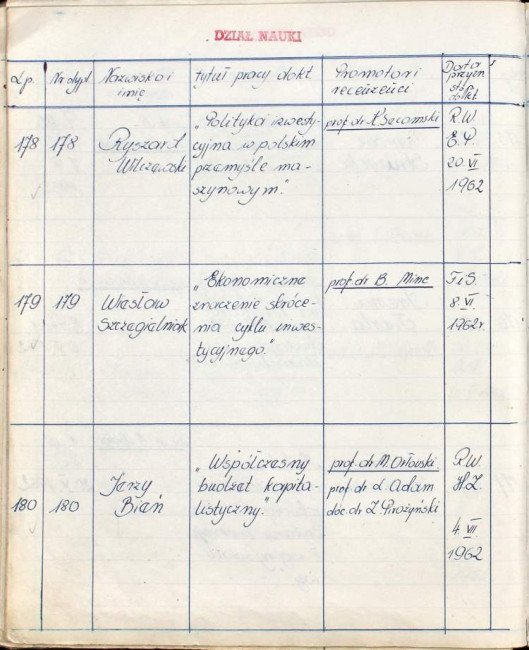 DZIAŁ NAUKI
Lp. Nr dypl Nazwisko i imię tytuł pracy dokt. Promotor i recenzenci Data przyzn. stp. dokt.
178 178 Ryszard Wilczewski
„Polityka inwesty-
cyjna w polskim
przemyśle ma-
szynowym."
prof. dr K. Secomski
R.W.
E.P.
20.VI
1962
179 179 Wiesław
Szczegielniak
„Ekonomiczne
znaczenie skróce-
nia cyklu inwes-
tycyjnego."
prof. dr B. Minc
F i S.
8.VI.
1962r.
180 180 Jerzy
Bień
„Współczesny
budżet kapita-
listyczny."
prof. dr M. Orłowski
prof. dr L. Adam
doc. dr Z. Pirożyński
R.W.
H.Z.
4.VII
1962